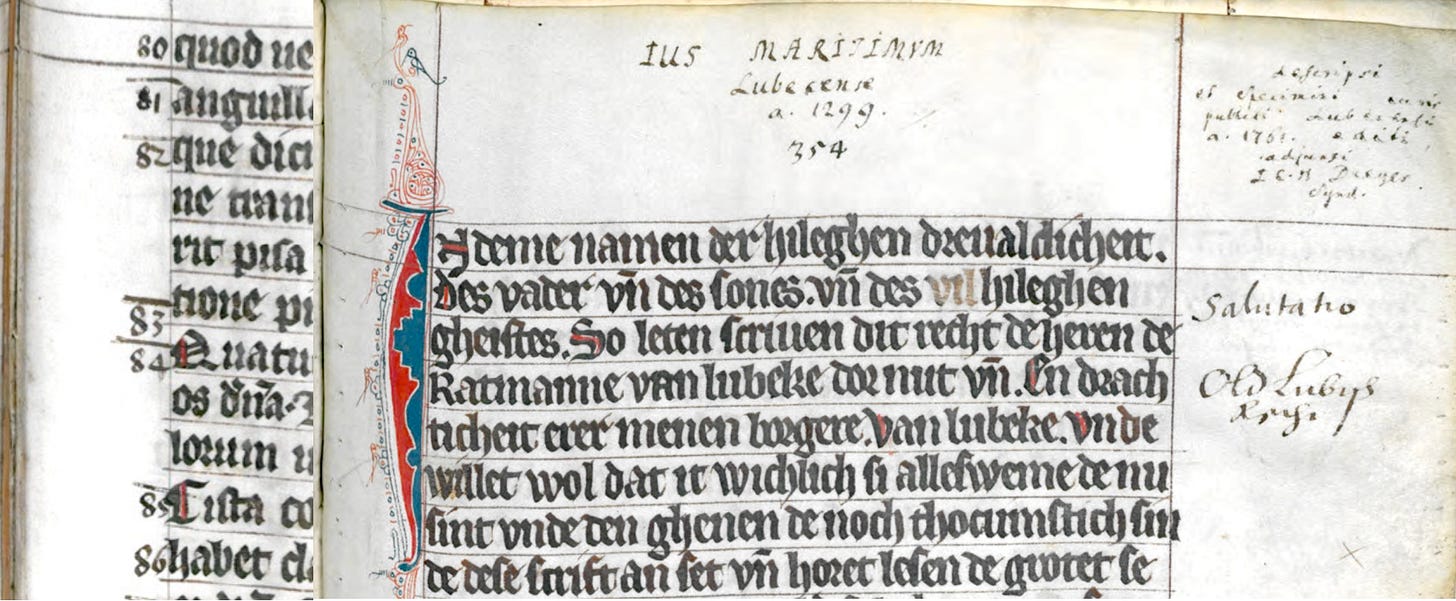 80 quod ue
81 anguill
82 que dici
ne tran
rit pisa
tione pi
83
84 Quatu
os dn̄a.
lorum u
85 Cista co
86 habet cl
IUS MARITIMVM
Lubecense
a. 1299.
354
descripsi
et specimini
a. 176
adjunxi
Dreyer
Synd.
N deme namen der hileghen dreualdicheit.
Des vader vn̄ des sones. vn̄ des vil hileghen
gheistes. So leten scriuen dit recht de heren de
Ratmanne van lubeke dor nut vn̄. En drach
ticheit erer menen borgere. Van lubeke. Vnde
willet wol dat it wichlich si allesweme de nu
sint vnde den ghenen de noch thocumstich sin
de dese scrift an set vn̄ horet lesen de grotet se
Salutatio
Old Lubs
Recht